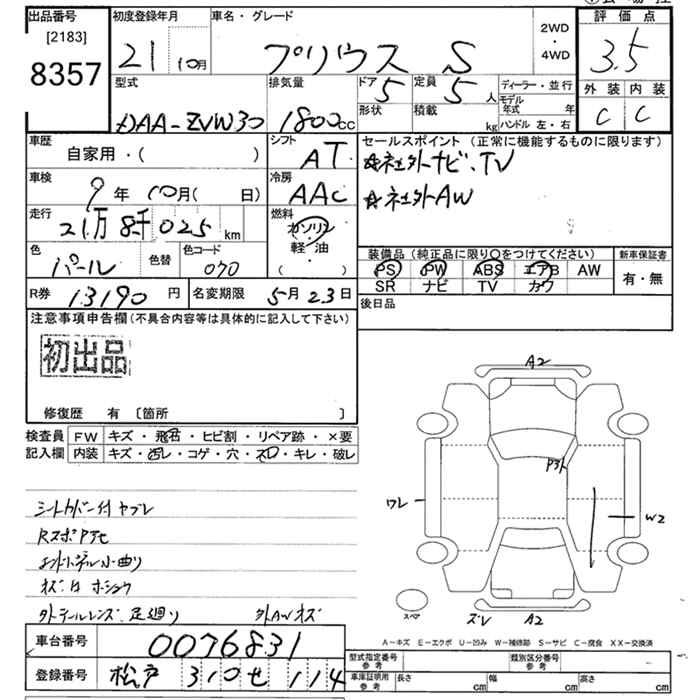 出品番号
[2183]
8357
初度登録年月
21 10月
車名・グレード
プリウス S
2WD
・
4WD
評価点
3.5
外装 内装
C C
型式
DAA-ZVW30
排気量
1800cc
ドア 5
定員 5人
形状
積載 kg
ディーラー・並行
モデル年式 年
ハンドル 左・右
車歴
自家用・( )
シフト
AT
車検
9年 10月( 日)
冷房
AAC
走行
21万8千025km
燃料
ガソリン
軽・油
( )
色
パール
色替
色コード
070
R券 13190円
名変期限 5月23日
セールスポイント(正常に機能するものに限ります)
☆社外ナビ、TV
☆社外AW
装備品(純正品に限り○をつけてください)
PS PW ABS エアB AW
SR ナビ TV カワ
新車保証書
有・無
後日品
注意事項申告欄(不具合内容等は具体的に記入して下さい)
初出品
修復歴 有 〔箇所 〕
検査員記入欄
FW キズ・飛石・ヒビ割・リペア跡・×要
内装 キズ・汚レ・コゲ・穴・スレ・キレ・破レ
シートカバー付 ヤブレ
外テールレンズ、足廻り 外AWキズ
A2
ワレ
W2
スペア
ズレ
A2
A−キズ E−エクボ U−凹み W−補修跡 S−サビ C−腐食 XX−交換済
車台番号 0076831
登録番号 松戸 310 せ 114
型式指定番号 参考
類別区分番号 参考
車庫証明用 参考
長さ cm 幅 cm 高さ cm